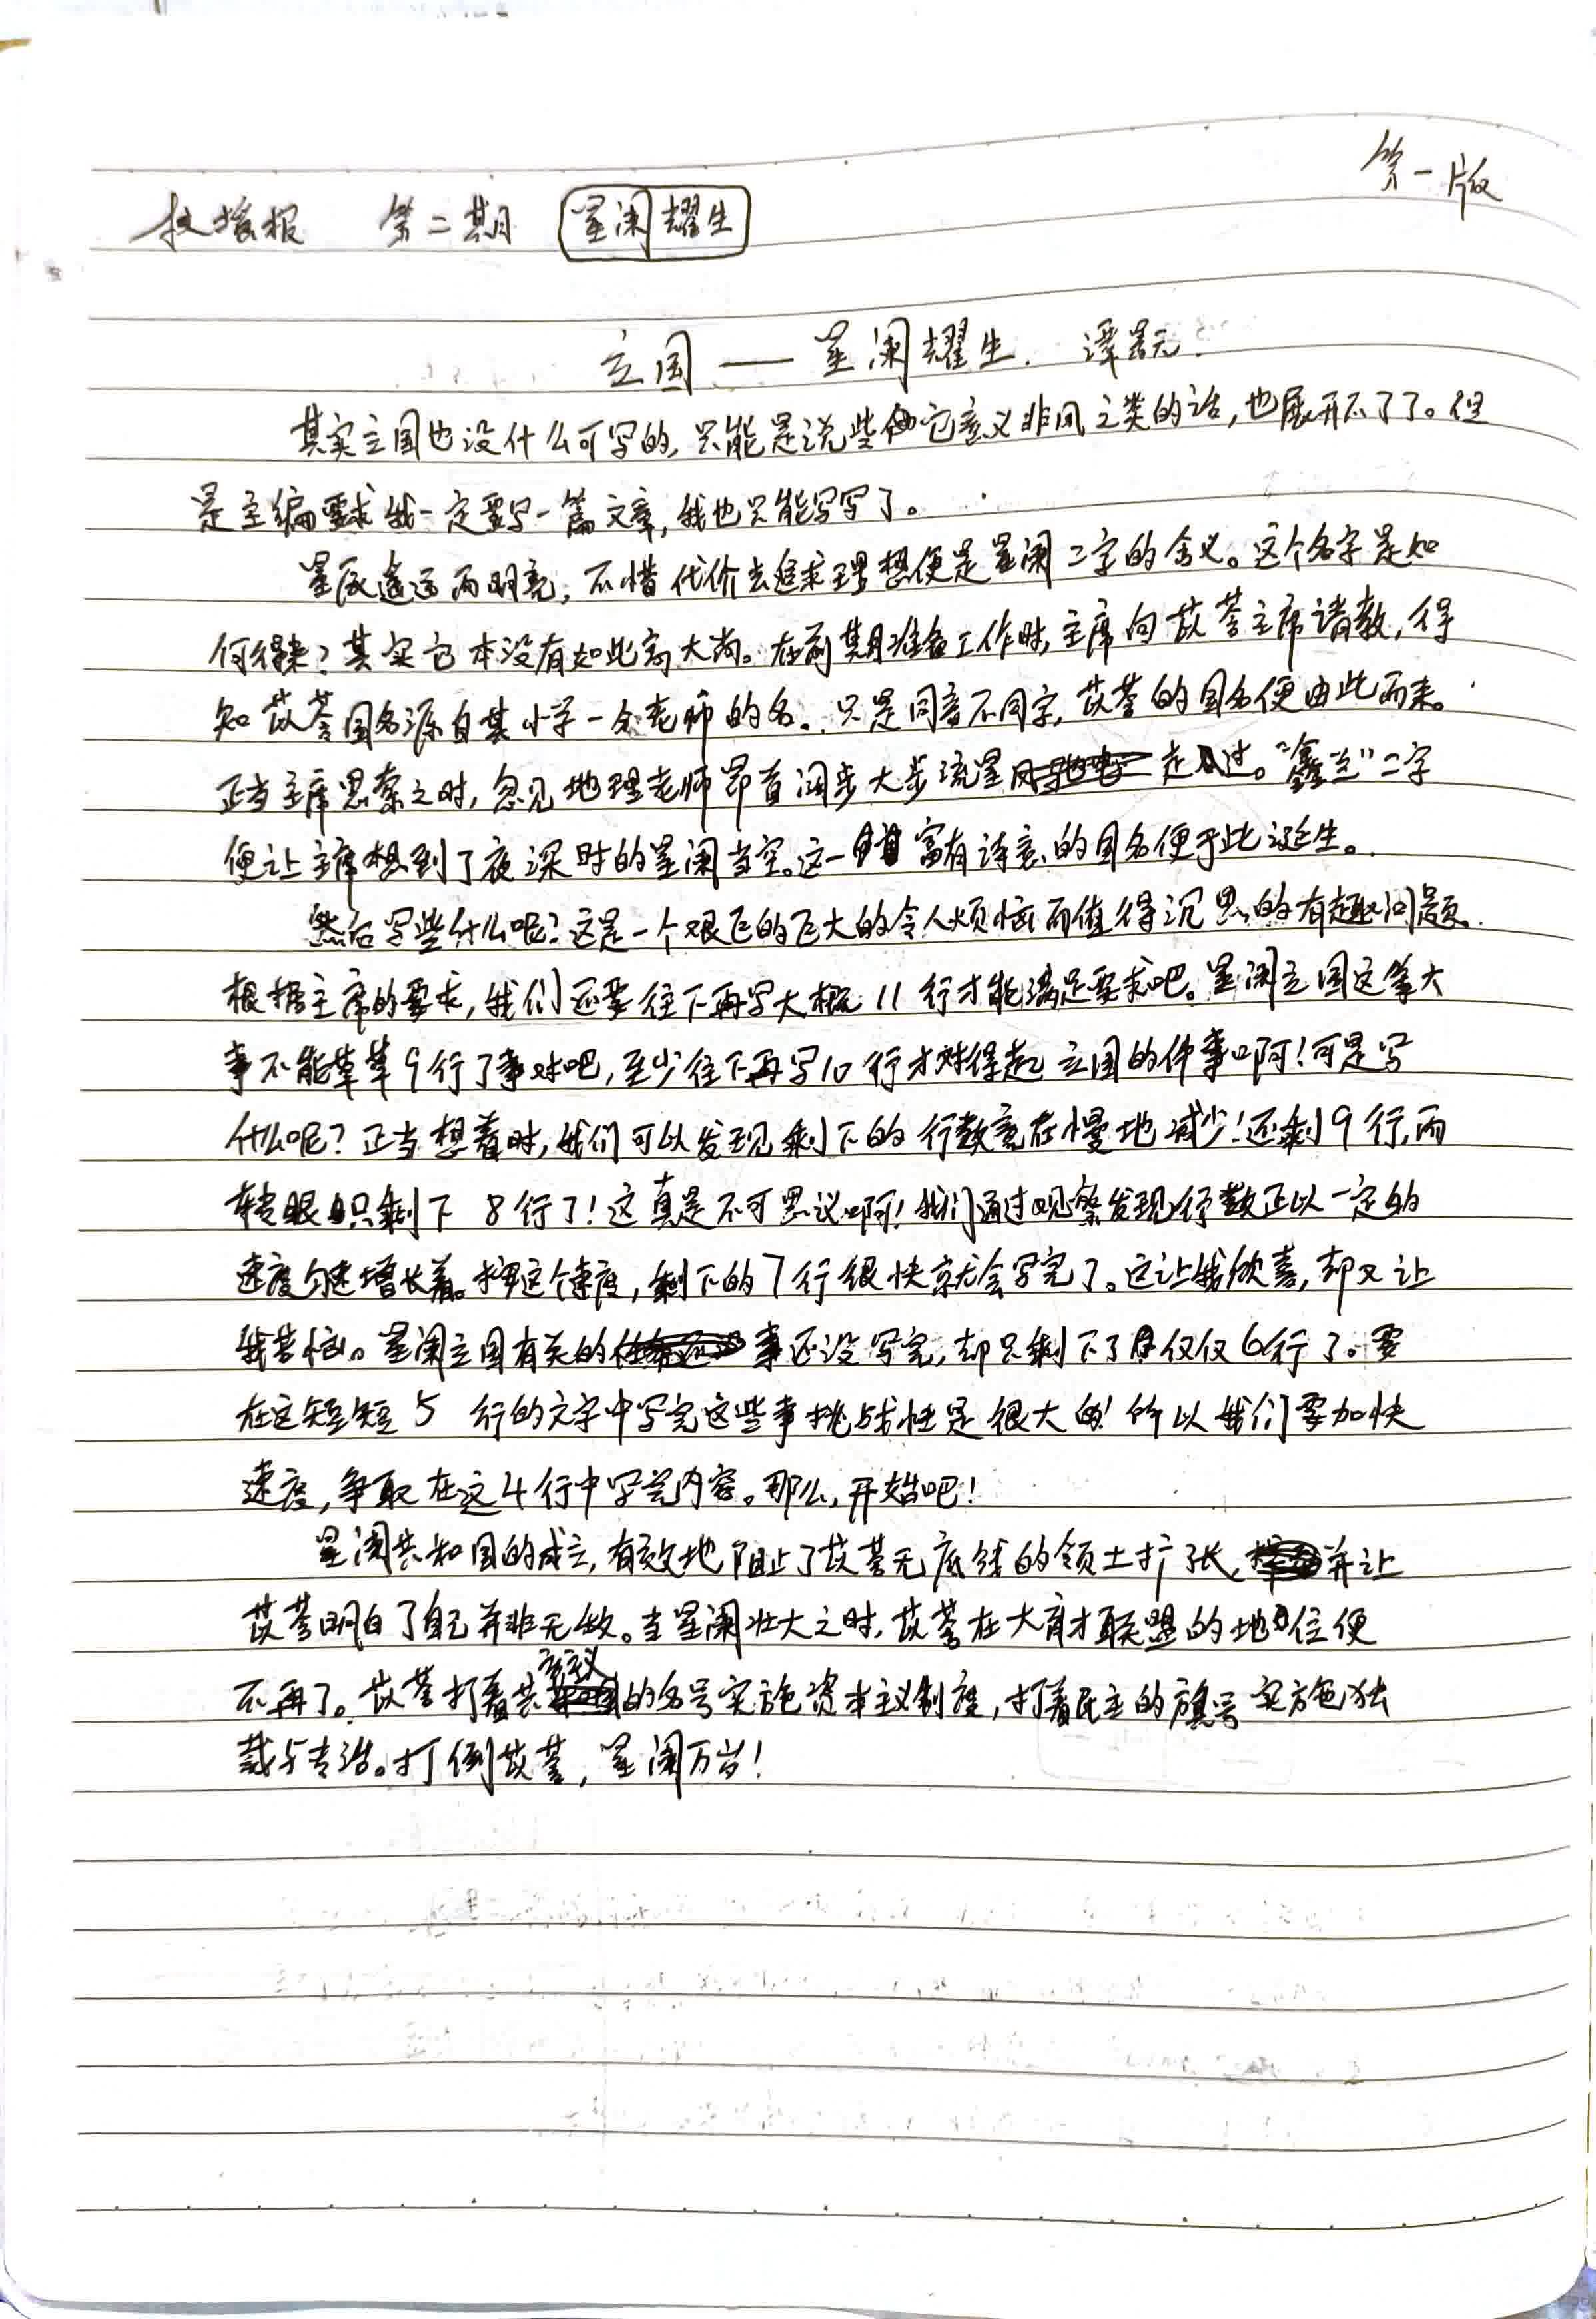 第一版
扠搖报 第二期 星阑耀生
立国——星阑耀生. 谭器元.
其实立国也没什么可写的,只能是说些它意义非凡之类的话,也展开不了了。但
是主编要求我一定要写一篇文章,我也只能写写了。
星辰遥远而明亮,不惜代价去追求理想便是星阑二字的含义。这个名字是如
何得来?其实它本没有如此高大尚。在前期准备工作时,主席向苡荟主席请教,得
知苡荟国名源自其小学一个老师的名。只是同音不同字,苡荟的国名便由此而来。
正当主席思索之时,忽见地理老师昂首阔步大步流星走过。“鑫兰”二字
便让主席想到了夜深时的星阑当空。这一富有诗意的国名便于此诞生。
然后写些什么呢?这是一个艰巨的巨大的令人烦恼而值得沉思的有趣问题.
根据主席的要求,我们还要往下再写大概11行才能满足要求吧。星阑立国这等大
事不能草草9行了事对吧,至少往下再写10行才对得起立国的件事啊!可是写
什么呢?正当想着时,我们可以发现剩下的行数竟在慢地减少!还剩9行,而
转眼只剩下8行了!这真是不可思议啊!我们通过观察发现行数正以一定的
速度匀速增长着。按这个速度,剩下的7行很快就会写完了。这让我欣喜,却又让
我苦恼。星阑立国有关的事还没写完,却只剩下了仅仅6行了。要
在这短短5行的文字中写完这些事挑战性是很大的!所以我们要加快
速度,争取在这4行中写完内容。那么,开始吧!
星阑共和国的成立,有效地阻止了苡荟无底线的领土扩张,并让
苡荟明白了自己并非无敌。当星阑壮大之时,苡荟在大育才联盟的地位便
不再了。苡荟打着共产主义的名号实施资本主义制度,打着民主的旗号实施独
裁与专治。打倒苡荟,星阑万岁!